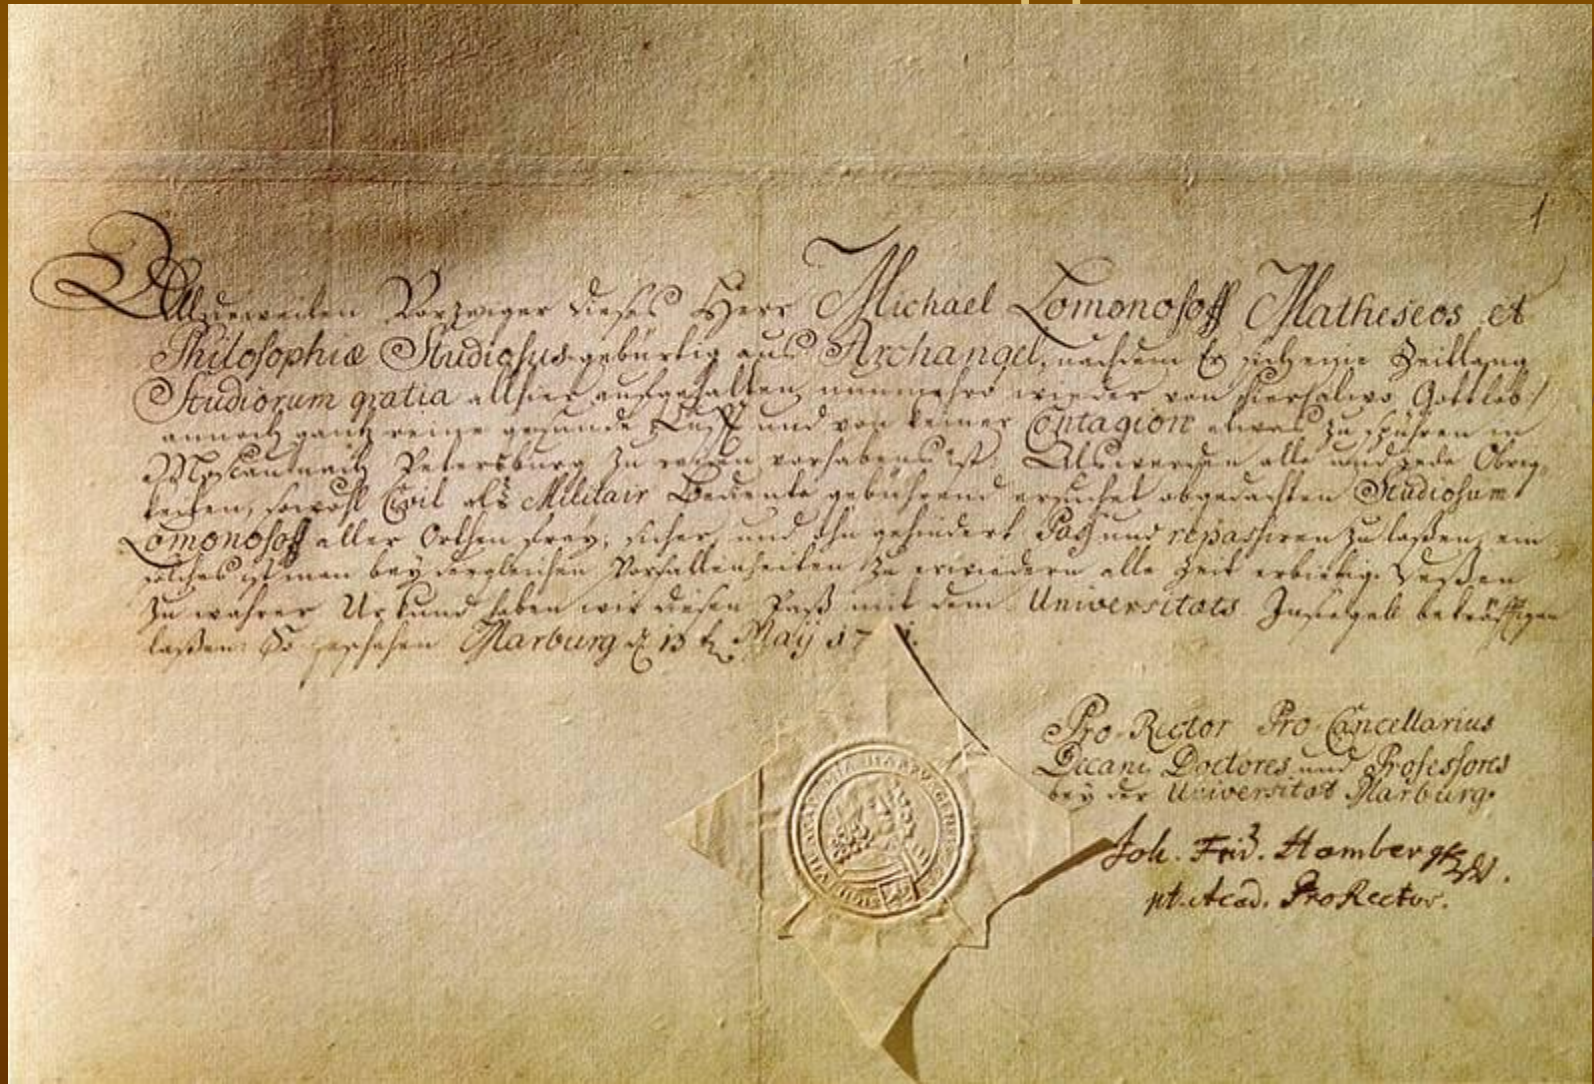 1
Alldieweilen Vorzeiger dieses Herr Michael Lomonosoff Matheseos et
Philosophiæ Studiosus gebürtig aus Archangel, nachdem Er sich eine Zeitlang
Studiorum gratia allhier aufgehalten nunmehro wieder von hier |: alwo Gottlob :|
annoch gantz reine gesunde Lufft und von keiner Contagion etwas zu spühren in
nach Petersburg zu vorhabens ist. Als werden alle und jede Obrig¬
keiten, sowohl Civil als Militair Bediente gebührend ersuchet obgedachten Studiosum
Lomonosoff aller Orthen frey, sicher, und ohngehindert Paß und repassiren zu laßen, ein
solches ist man bey dergleichen Vorfallenheiten zu erwiedern alle Zeit erbietig. Deßen
zu wahrer Urkund haben wir diesen Paß mit dem Universitäts Insiegel bekräfftigen
laßen. So geschehen Marburg d 13 May 17
Pro-Rector Pro-Cancellarius
Decani Doctores und Professores
bey der Universität Marburg.
Joh. Frid. Homberg
pt. Acad. ProRector.